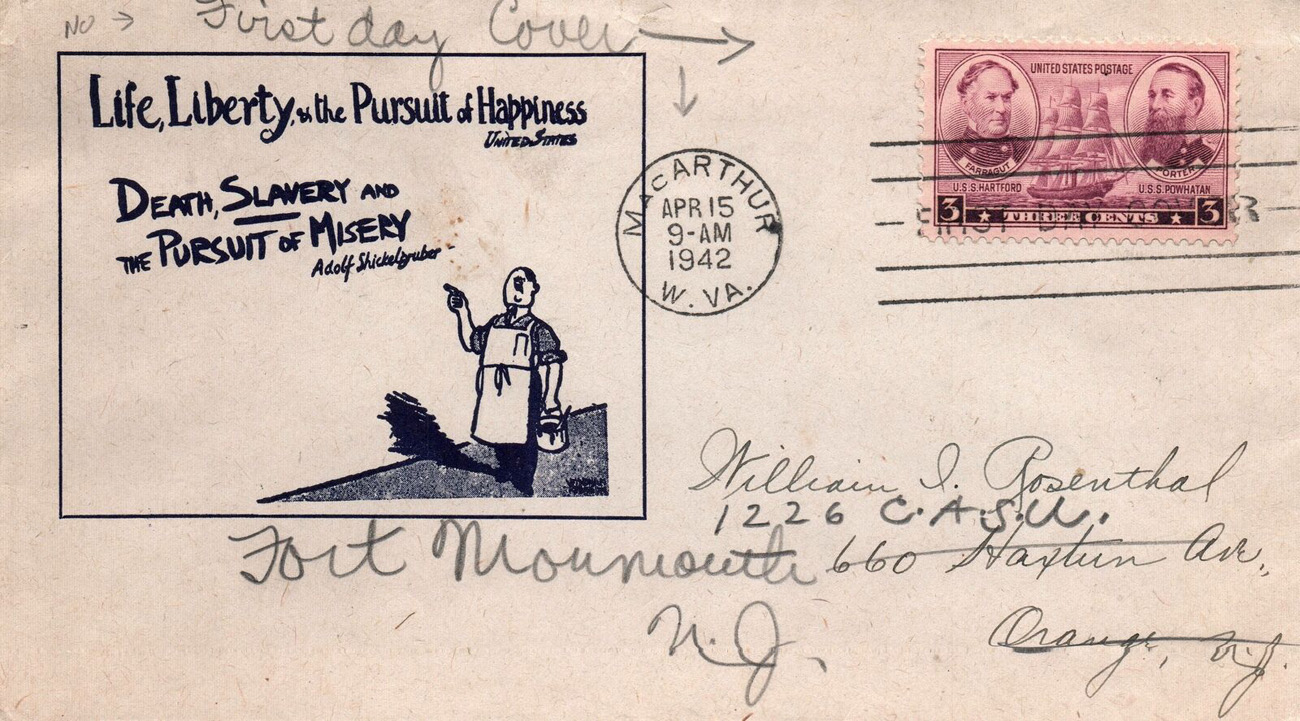 NO → First day Cover →
Life, Liberty, & the Pursuit of Happiness
United States
Death, Slavery and
the Pursuit of Misery
Adolf Shickelgruber
MACARTHUR
APR 15
9-AM
1942
W. VA.
UNITED STATES POSTAGE
FARRAGUT
PORTER
U.S.S. HARTFORD
U.S.S. POWHATAN
3 ★ THREE CENTS ★ 3
FIRST DAY COVER
William I. Rosenthal
1226 C.A.S.U.
660 Haxtun Ave.,
Orange, N.J.
Fort Monmouth
N.J.